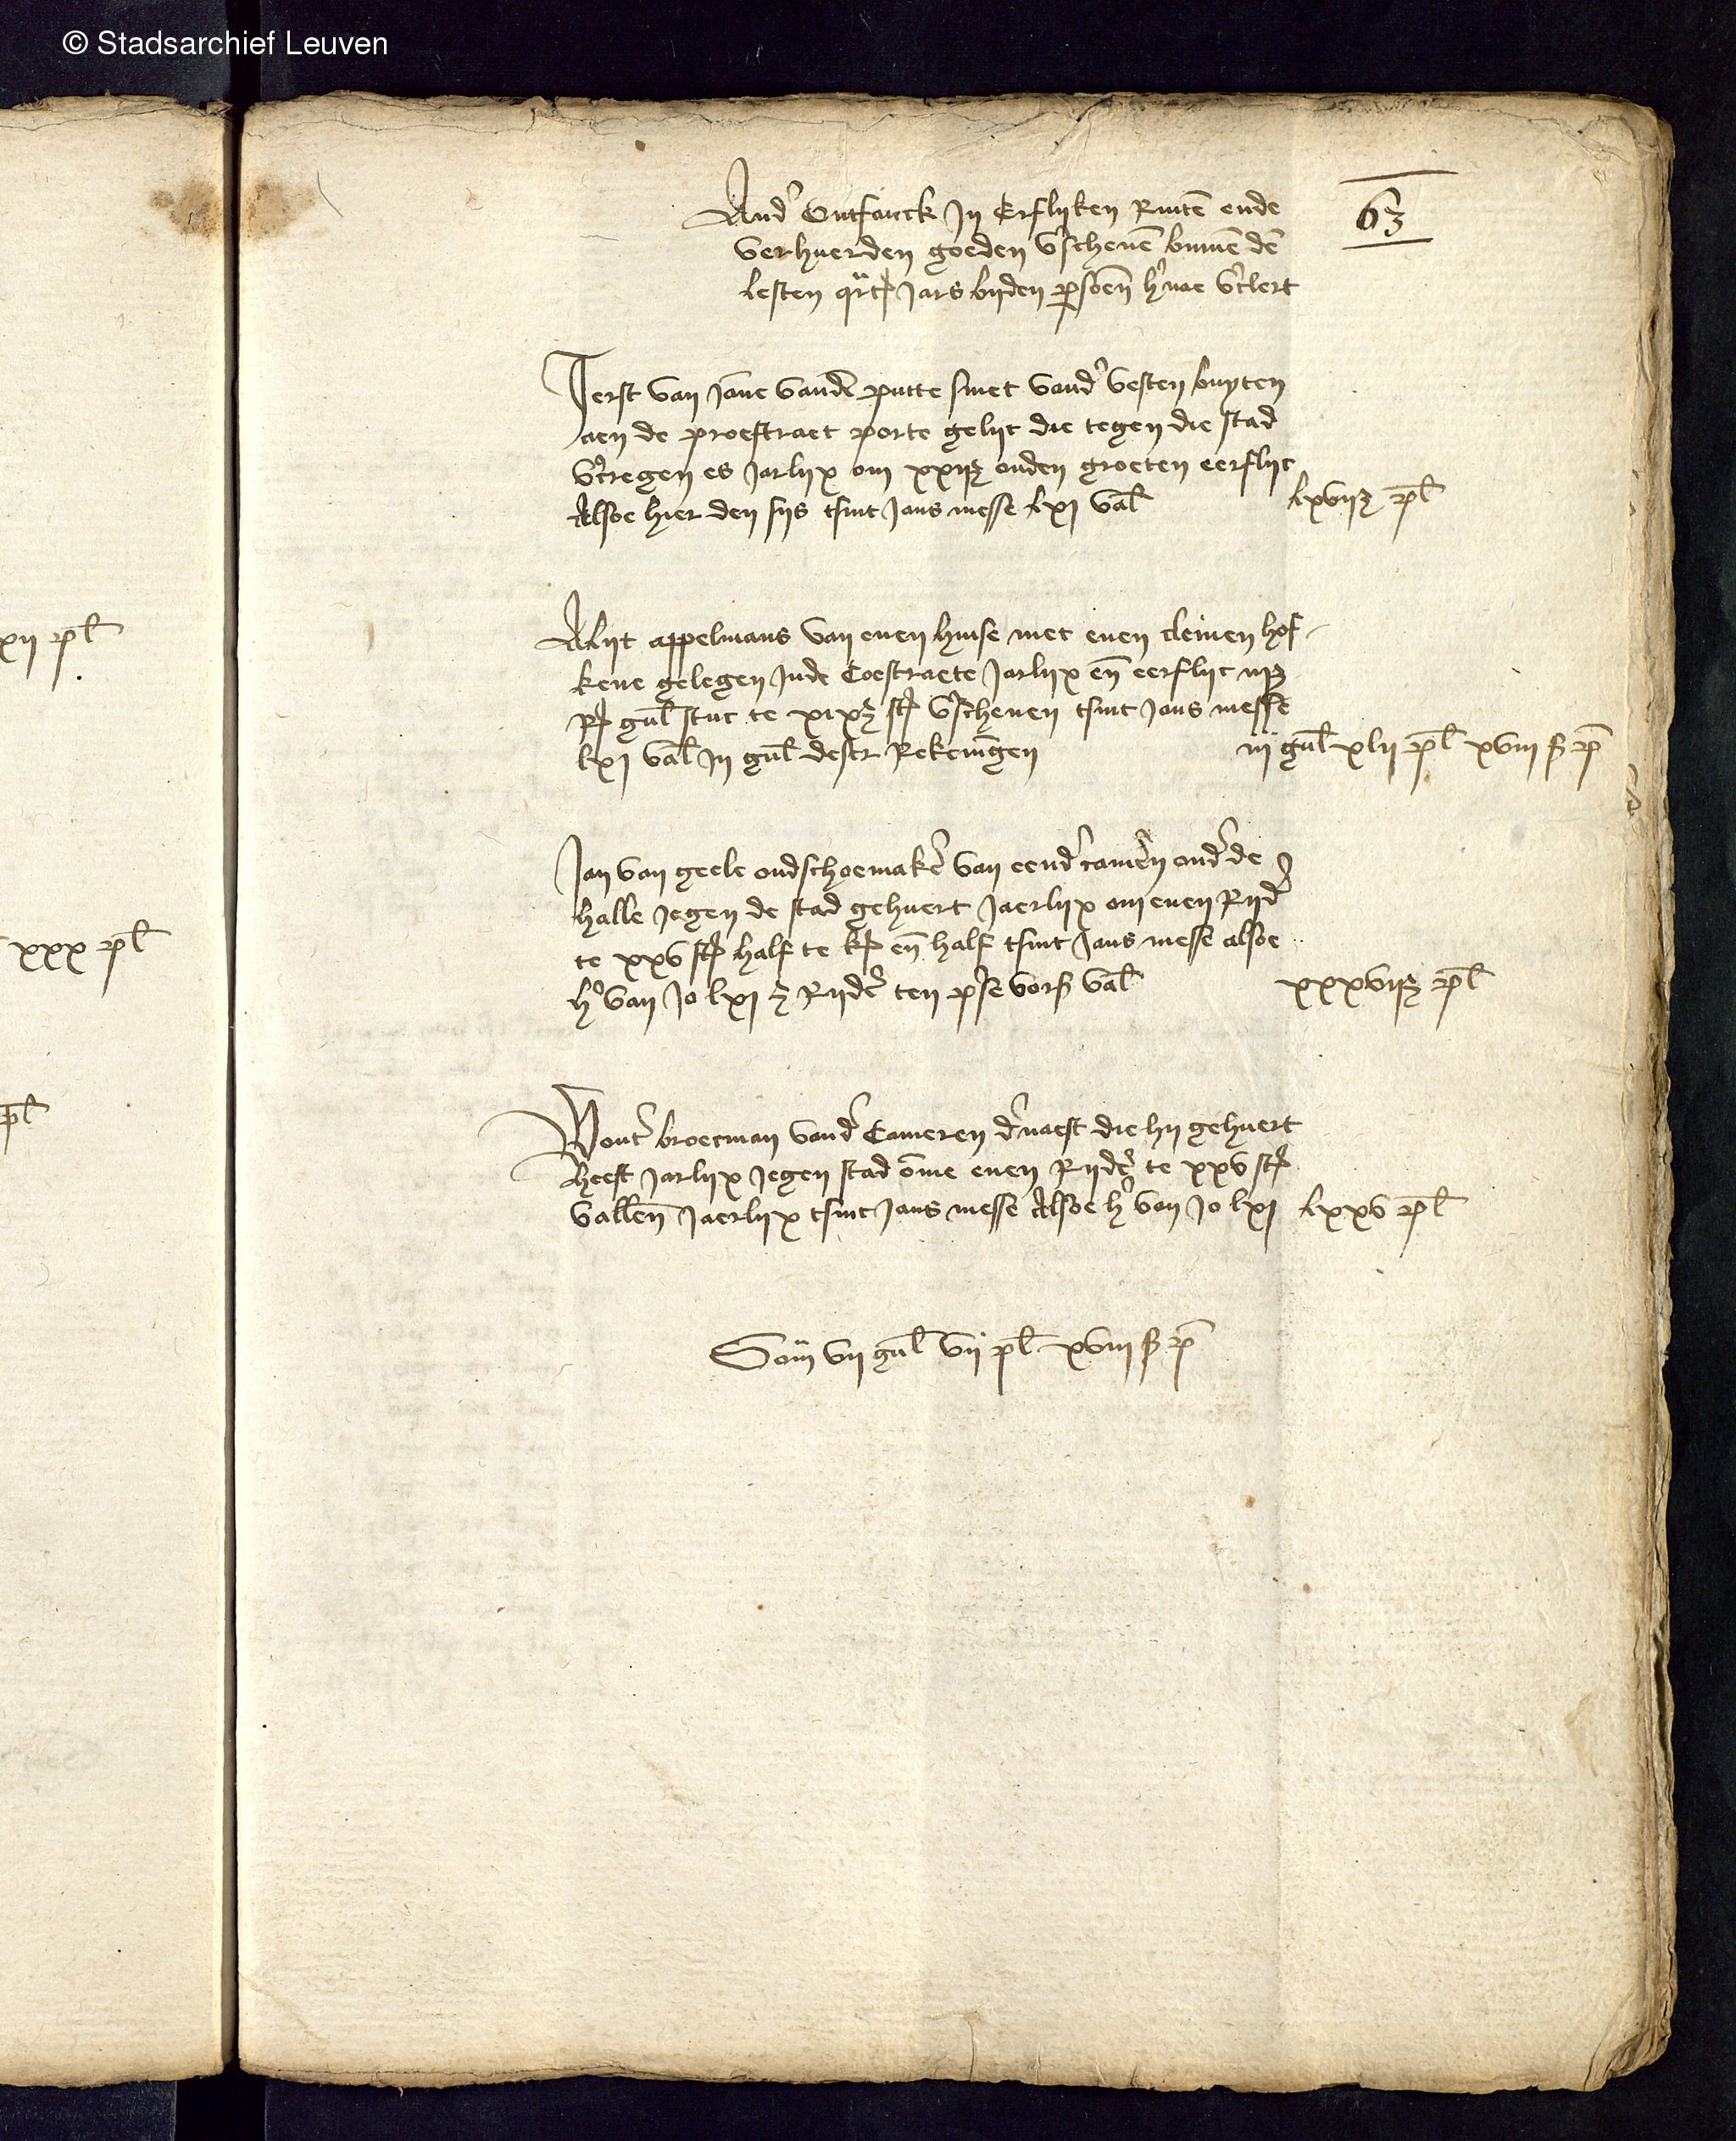 © Stadsarchief Leuven
63
And' Ontfanck Jn Erflyken Rintē ende
verhuerden goeden v'schenē bynnē dē
lesten q̈rt Jars byden p̱soen̄ h'nae v'clert
Jerst van Jāne vandē putte smet vand' vesten buyten
aen de proefstraet porte gelijc die tegen die stad
v'cregen es Jarlijx om xxijȝ ouden groeten eerflijc
Alsoe hier den sijs tsint Jans messe lxj val̄
lxvijȝ pl̄
Alijt appelmans van enen huise met enen cleinen hof-
kene gelegen Jnde Coestraete Jarlijx en̄ eerflijc iijȝ
R gul̄ stuc te xixȝ st v'schenen tsint Jans messe
lxj val̄ Jn gul̄ deser Rekeningen
iij gul̄ xlij pl̄ xviij ß p̄
Jan van geele oudschoemake' van eend' camē'n ond' de
halle Jegen de stad gehuert Jaerlijx om enen Rijd'
te xxv st half te k en̄ half tsint Jans messe alsoe
h' van Jo lxj ȝ Rijde' ten p'se vors val̄
xxxvijȝ pl̄
Wout' broecman vand' Cameren d'naest die hy gehuert
heeft Jarlijx Jegen stad ōme enen Rijde' te xxv st
vallen̄ Jaerlijx tsint Jans messe Alsoe h' van Jo lxj
lxxv pl̄
Som̄ vij gul̄ vij pl̄ xviij ß p̄
xij pl̄
xxx pl̄
pl̄